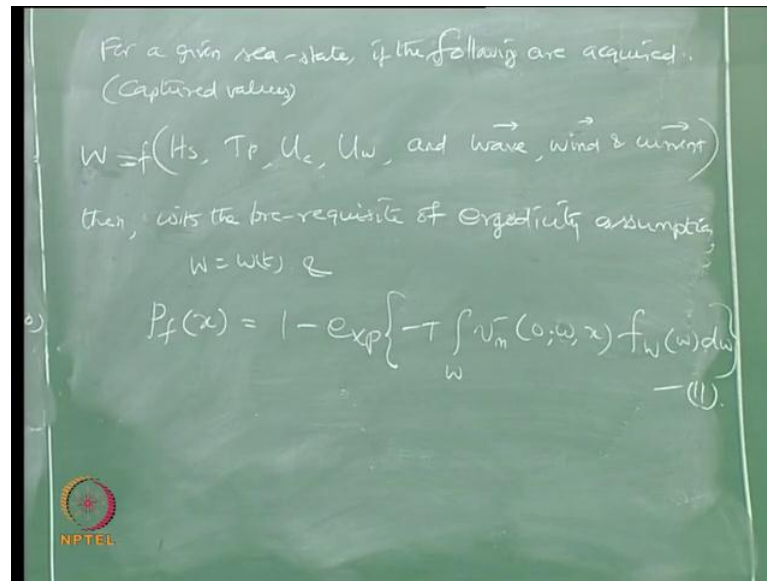 For a given sea-state, if the following are acquired..
(Captured values)
W = f(Hs, Tp, Uc, Uw, and wave→, wind→ & current→)
then, with the pre-requisite of ergodicity assumption,
W = w(t) &
Pf(x) = 1 - exp{-T ∫_W ν_m^-(0; w, x) f_W(w) dw}
-(11).
NPTEL